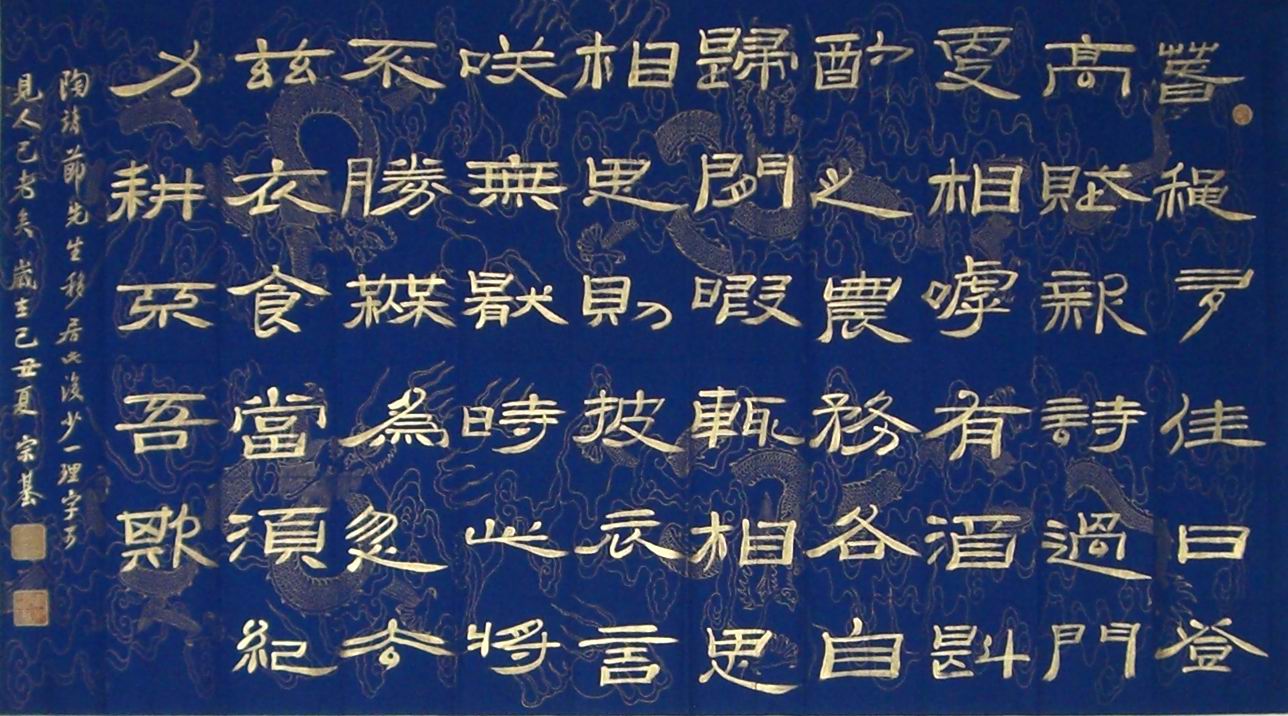 萅穐多佳日登
高賦新詩過門
更相嘑有酒斟
酌之農務各自
歸閒暇輒相思
相思則披衣言
咲無厭時此將
不勝橆為忽去
茲衣食當須紀
力耕不吾欺
陶靖節先生移居此後少一理字方
見人已老矣 歲在己丑夏 宗基